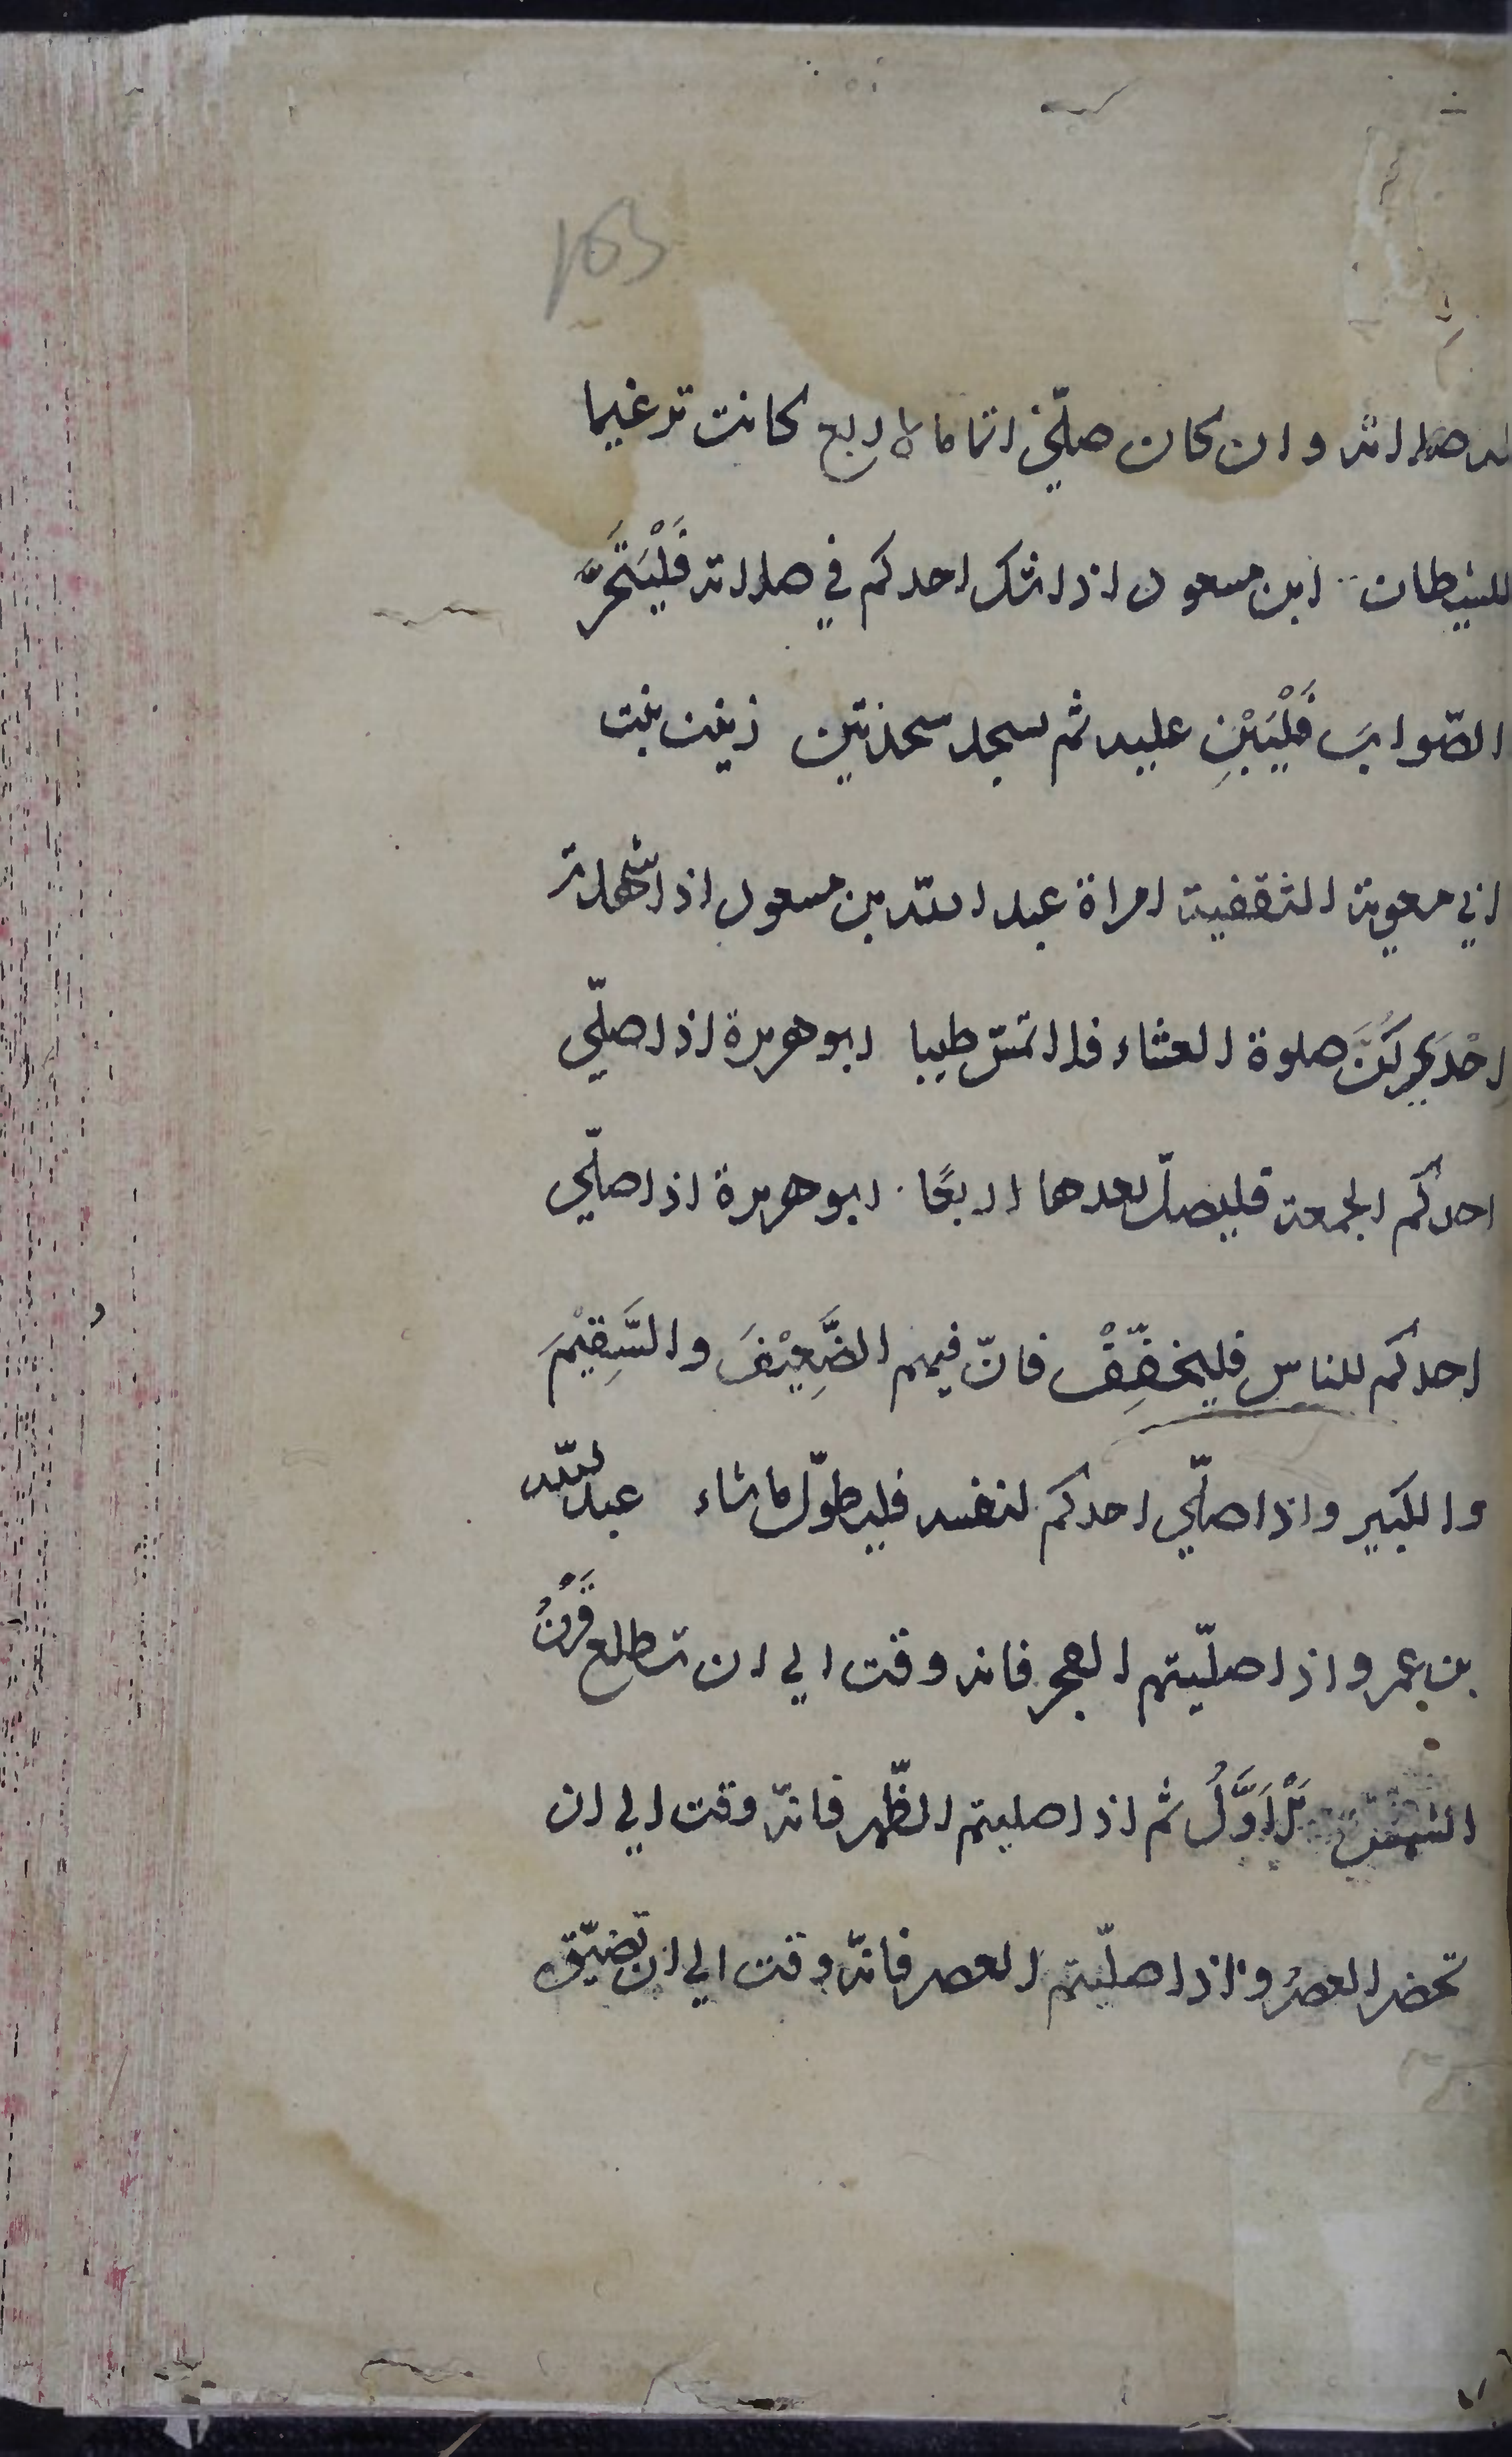 163
له صلاته وان كان صلّي اتماما لاربع كانت ترغيما
للشيطان ابن مسعود اذا شك احدكم في صلاته فَلْيَتَحَرَّ
الصّوابَ فَلْيَبْنِ عليه ثم يسجد سجدتين زينب بنت
ابي معوية الثقفية امراة عبد اللّه بن مسعود اذا شهدت
اِحْديكُنَّ صلوة العشاء فلا تمسّ طيبا ابو هريرة اذا صلّي
احدكم الجمعة فليصلّ بعدها اربعًا ابو هريرة اذا صلّي
احدكم للناس فليخفّفْ فانّ فيهم الضَّعِيْفَ والسَّقِيْمَ
والكبير واذا صلّي احدكم لنفسه فليطوّل ما شاء عبد اللّه
بن عمرو اذا صلّيتم الفجر فانه وقت الي ان تطلع قَرْنُ
الشمس الْاَوَّلُ ثم اذا صليتم الظّهر فانّه وقت الي ان
تحضر العصرُ واذا صلّيتم العصر فانّه وقت الي ان تضيّق